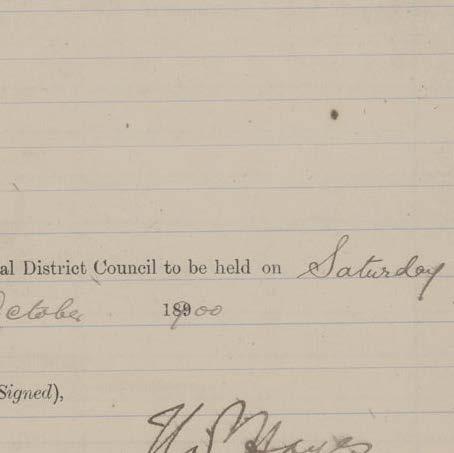 al District Council to be held on Saturday
October 18900
Signed),
Hayes